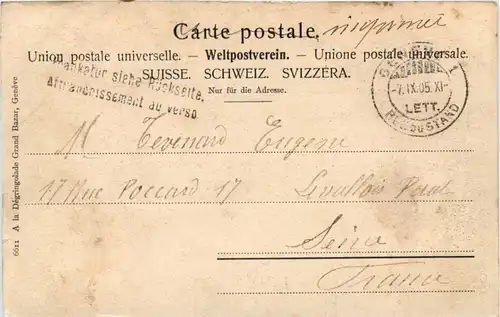 Carte postale. imprimé
Union postale universelle. — Weltpostverein. — Unione postale universale.
SUISSE. SCHWEIZ. SVIZZERA.
Nur für die Adresse.
Frankatur siehe Rückseite.
Affranchissement au verso.
-7.IX.05.XI-
LETT.
6611 A la Dégringolade Grand Bazar, Genève
M Tevenard Eugene
17 Rue Poccard 17 Levallois Peret
Seine
France